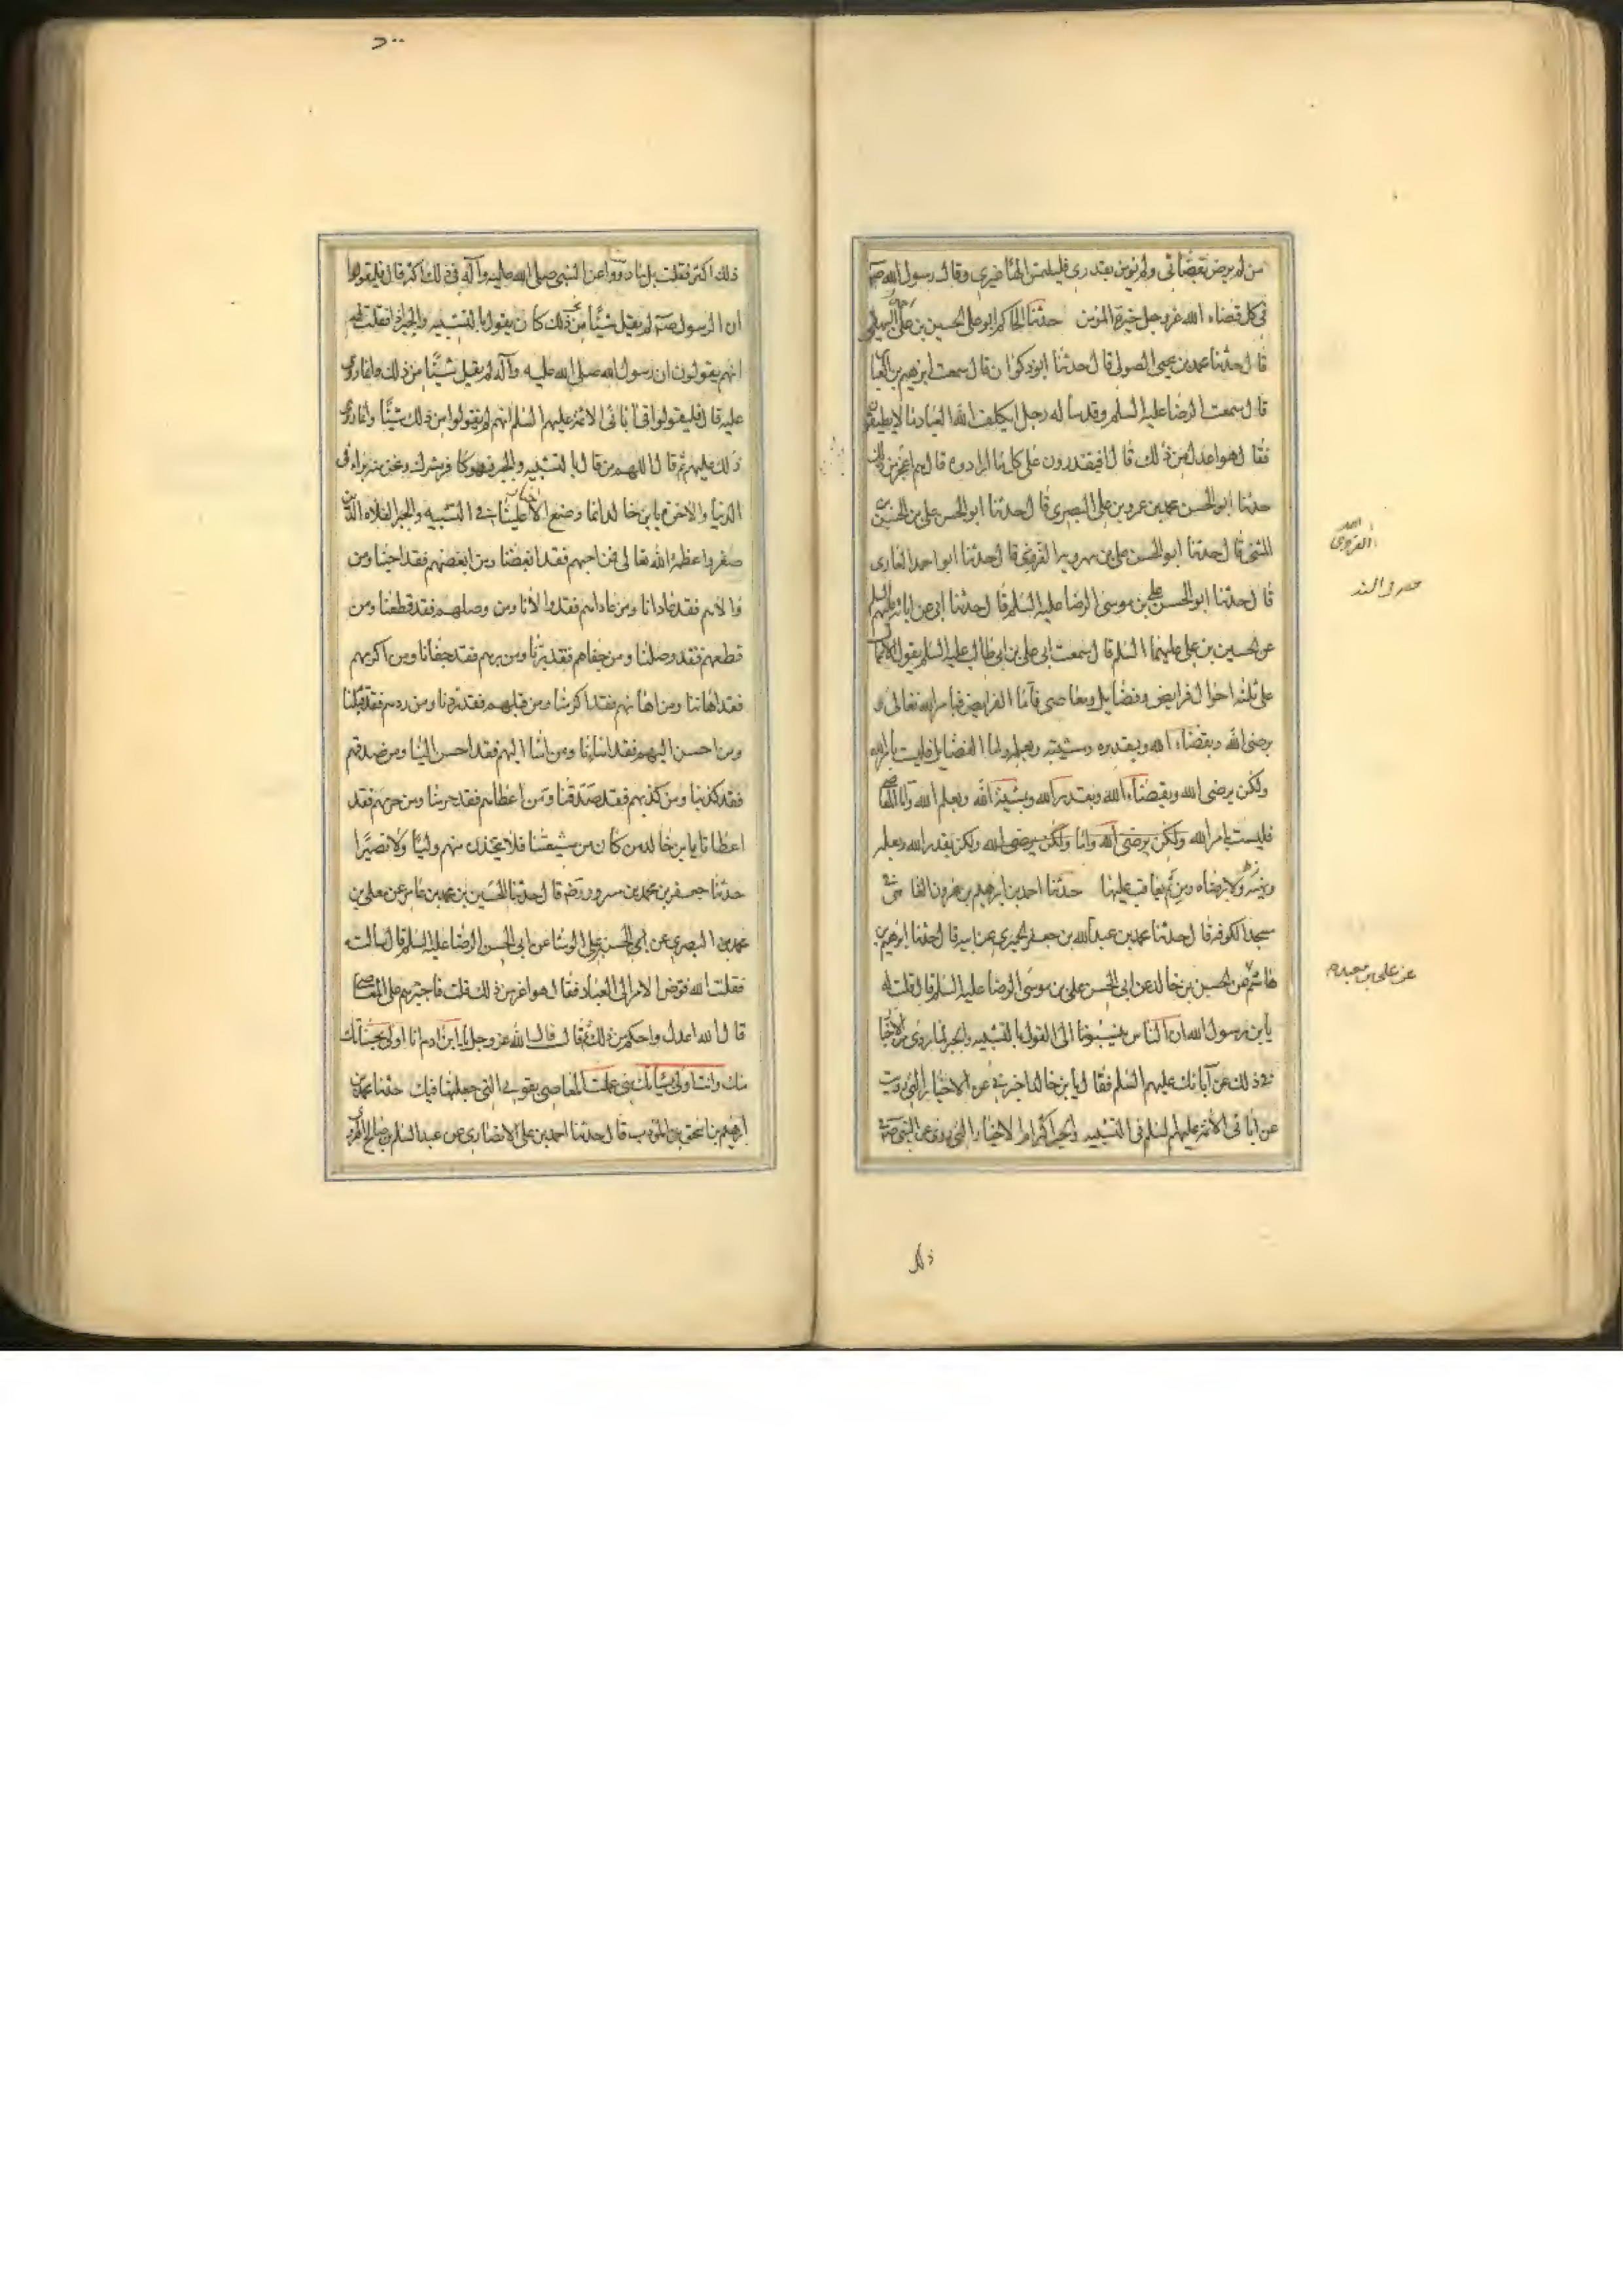 من لم يرض بقضائي ولم يؤمن بقدري فليلتمس الها غيري وقال رسول الله صم
في كل قضاء الله عز وجل خيرة للمؤمن حدثنا الحاكم ابو علي الحسين بن احمد البيهقي
قال حدثنا محمد بن يحيى الصولي قال حدثنا ابو ذكوان قال سمعت ابرهيم بن العباس
قال سمعت الرضا عليه السلم وقد سأله رجل ايكلف الله العباد ما لا يطيقون
فقال هو اعدل من ذلك قال افيقدرون على كل ما ارادوه قال هم اعجز من ذلك
حدثنا ابو الحسن محمد بن عمرو بن علي البصري قال حدثنا ابو الحسن علي بن الحسن بن
المثنى قال حدثنا ابو الحسن علي بن مهرويه القزويني قال حدثنا ابو احمد الغازي
قال حدثنا ابو الحسن علي بن موسى الرضا عليه السلم قال حدثنا ابي عن ابائه عليهم السلم
عن الحسين بن علي عليهما السلم قال سمعت ابي علي بن ابي طالب عليه السلم يقول الاعمال
على ثلثة احوال فرايض وفضايل ومعاصي فاما الفرايض فبامر الله تعالى و
برضى الله وبقضاء الله وبقدره ومشيته وبعلمه واما الفضايل فليست بامر الله
ولكن برضى الله وبقضاء الله وبقدر الله وبمشية الله وبعلم الله واما المعاصي
فليست بامر الله ولكن برضى الله واما ولكن برضى الله ولكن بقدر الله وبعلمه
ولا برضاه ومن ثم يعاقب عليها حدثنا احمد بن ابرهيم بن هرون الفامي في
مسجد الكوفة قال حدثنا محمد بن عبد الله بن جعفر الحميري عن ابيه قال حدثنا ابرهيم بن
هاشم عن الحسين بن خالد عن ابي الحسن علي بن موسى الرضا عليه السلم قال قلت له
يا بن رسول الله ان الناس ينسبونا الى القول بالتشبيه والجبر لما روي من الاخبار
في ذلك عن آبائك عليهم السلم فقال يا بن خالد اخبرني عن الاخبار التي رويت
عن ابائي الائمة عليهم السلم في التشبيه والجبر اكثر ام الاخبار التي رويت عن النبي صم في
القزويني
عن علي بن معبد
ذلك
ذلك اكثر فقلت بل ما رووا عن النبي صلى الله عليه وآله في ذلك اكثر قال فليقولوا
ان الرسول صم لم يقبل شيئا من ذلك كان يقول بالتشبيه والجبر اذا فقلت لهم
انهم يقولون ان رسول الله صلى الله عليه وآله لم يقل شيئا من ذلك وانما روي
عليه قال فليقولوا في آبائي الائمة عليهم السلم انهم لم يقولوا من ذلك شيئا وانما روي
ذلك عليهم ثم قال اللهم من قال بالتشبيه والجبر فهو كافر مشرك ونحن منه براء في
الدنيا والاخرة يا بن خالد انما وضع الاخبار عنا في التشبيه والجبر الغلاة الذين
صغروا عظمة الله تعالى فمن احبهم فقد ابغضنا ومن ابغضهم فقد احبنا ومن
والاهم فقد عادانا ومن عاداهم فقد والانا ومن وصلهم فقد قطعنا ومن
قطعهم فقد وصلنا ومن جفاهم فقد برنا ومن برهم فقد جفانا ومن اكرمهم
فقد اهاننا ومن اهانهم فقد اكرمنا ومن قبلهم فقد ردنا ومن ردهم فقد قبلنا
ومن احسن اليهم فقد اساء الينا ومن اسا اليهم فقد احسن الينا ومن صدقهم
فقد كذبنا ومن كذبهم فقد صدقنا ومن اعطاهم فقد حرمنا ومن حرمهم فقد
اعطانا يا بن خالد من كان من شيعتنا فلا يتخذن منهم وليا ولا نصيرا
حدثنا جعفر بن محمد بن مسرور رضه قال حدثنا الحسين بن محمد بن عامر عن معلى بن
محمد بن البصري عن ابي الحسن بن علي الوشا عن ابي الحسن الرضا عليه السلم قال سالته
فقلت الله فوض الامر الى العباد فقال هو اعز من ذلك قلت فاجبرهم على المعاصي
قال الله اعدل واحكم من ذلك ثم قال قال الله عز وجل يا ابن ادم انا اولى بحسناتك
منك وانت اولى بسيآتك مني عملت المعاصي بقوتي التي جعلتها فيك حدثنا محمد بن
ابرهيم بن اسحق بن المؤدب قال حدثنا احمد بن علي الانصاري عن عبد السلم بن صالح الهروي